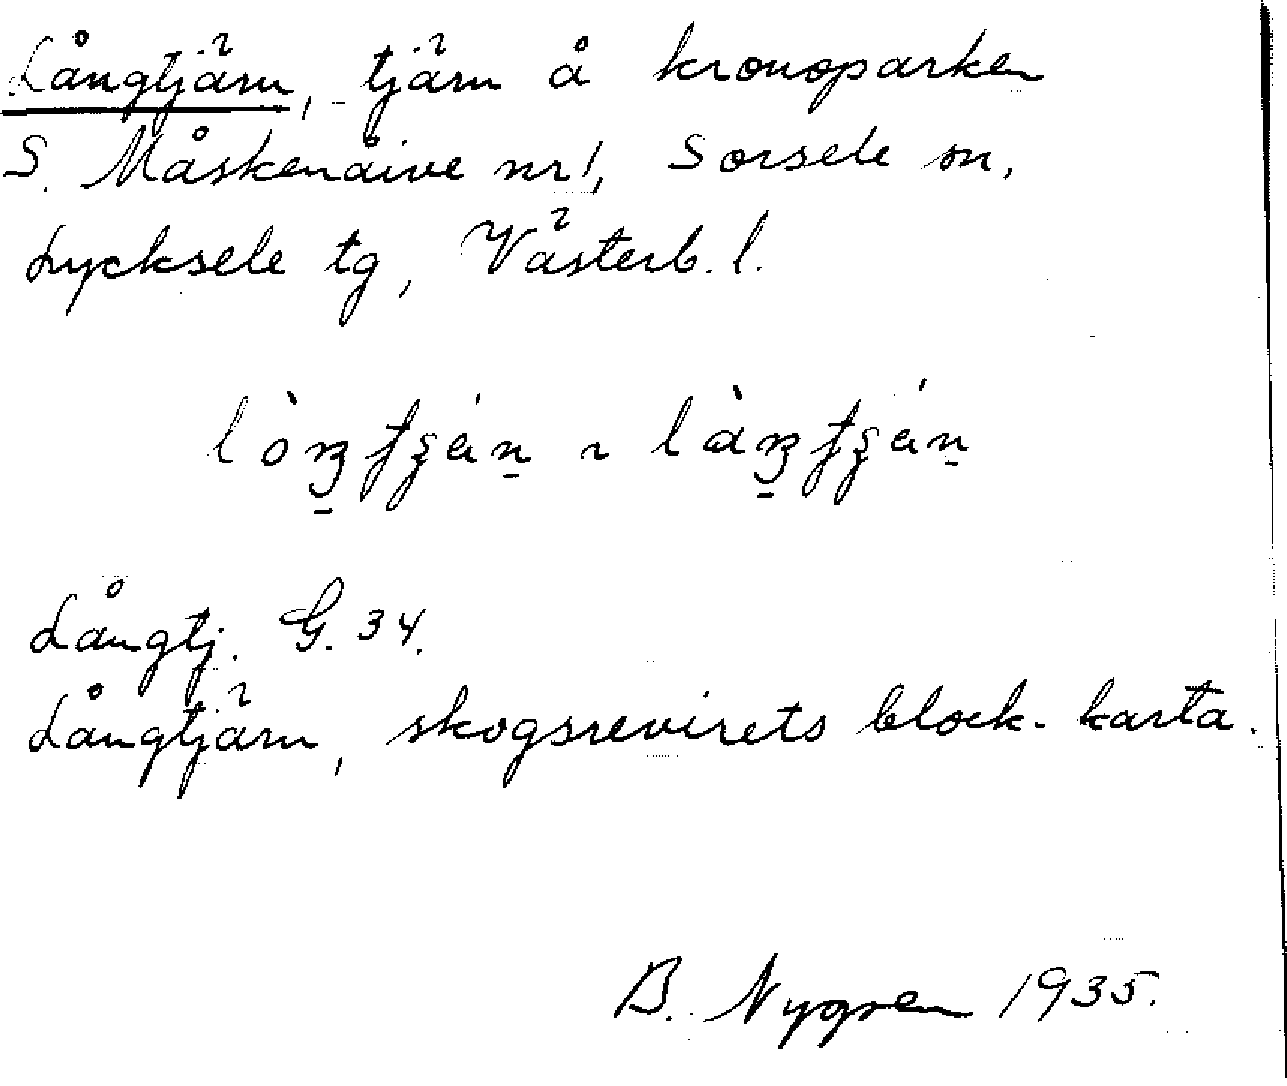 Långtjärn, tjärn å kronoparken
S. Måskenåive nr 1, Sorsele sn,
Lycksele tg, Västerb. l.
Långtj. G. 34.
Långtjärn, skogsrevirets block-karta.
B. Nygren 1935.